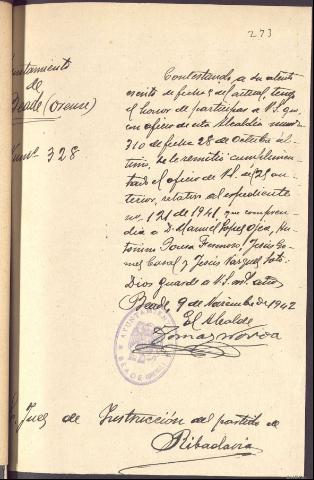 273
Ayuntamiento
de
Beade (Orense)
Num. 328
Contestando, a su atento
escrito de fecha 5 del actual, tengo
el honor de participar a V.S. que
con oficio de esta Alcaldía num.
310 de fecha 28 de Octubre ul-
timo, se le remitió cumplimen-
tado el oficio de V.S. del 21 an-
terior, relativo al expediente
no. 121 de 1941, que compren-
día a D. Manuel Lopez Ojea, An-
tonino Sousa Fermoso, Jesús Go-
mez Casal y Jesús Vazquez Soto.
Dios guarde a V.S. ms. años
Beade, 9 de Noviembre de 1942
El Alcalde
Tomas Novoa
AYUNTAMIENTO
BEADE (ORENSE)
Sr. Juez de Instrucción del partido de
Ribadavia